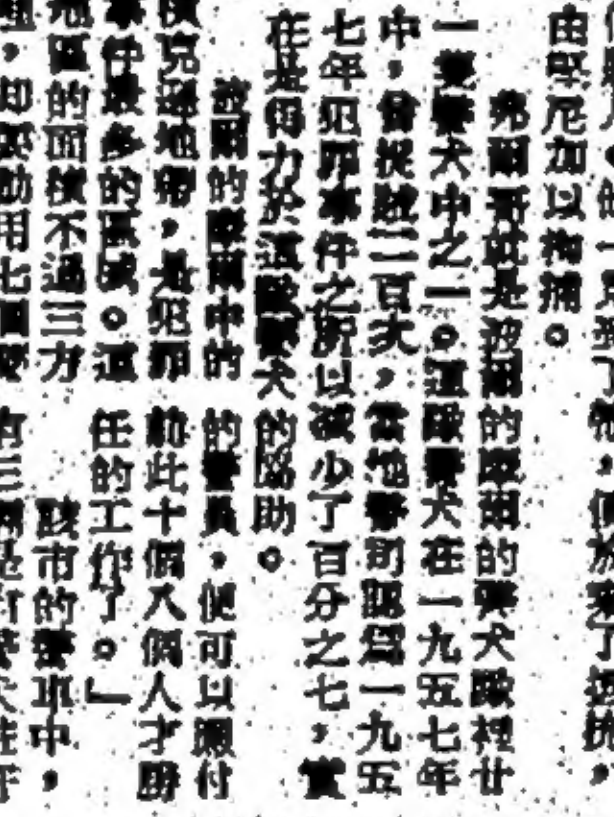 了他，便放棄了抵抗，
由堅尼加以拘捕。
弗爾哥就是波爾的摩爾的警犬隊裡廿
一隻警犬中之一。這隊警犬在一九五七年
中，曾捉賊二百次，當地警司認爲一九五
七年犯罪事件之所以減少了百分之七，實
在是得力於這隊警犬的協助。
波爾的摩爾中的
克遜地帶，是犯罪
事件最多的區域。這
地區的面積不過三方
哩，却要動用七個
的警員，便可以應付
前此十個八個人才勝
任的工作了。」
該市的警班中，